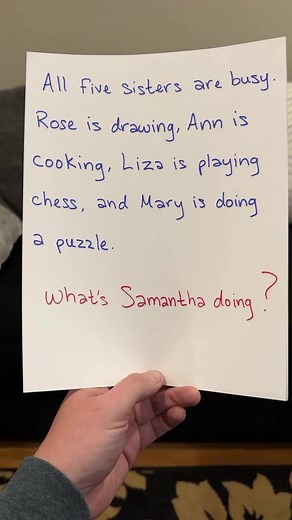 All five sisters are busy.
Rose is drawing, Ann is
cooking, Liza is playing
chess, and Mary is doing
a puzzle.
What's Samantha doing?